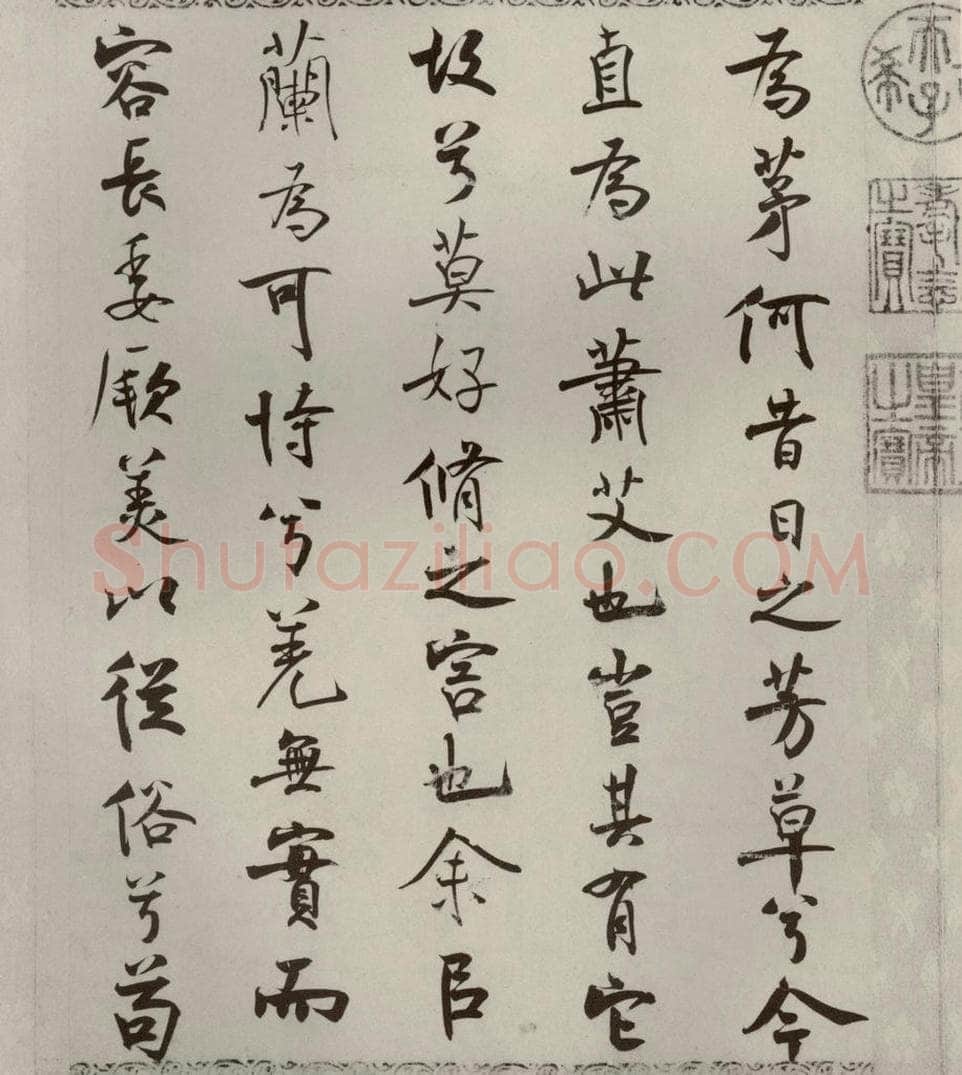 為茅何昔日之芳草兮今
直為此蕭艾也豈其有它
故兮莫好脩之害也余㠯
蘭為可恃兮羌無實而
容長委厥美以從俗兮苟
Shufaziliao.COM
皇帝之寶